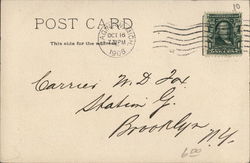 10
POST CARD
This side for the address
OCT 16
1906
Carrier W. D. Fox
Station G.
Brooklyn
N.Y.
6.00